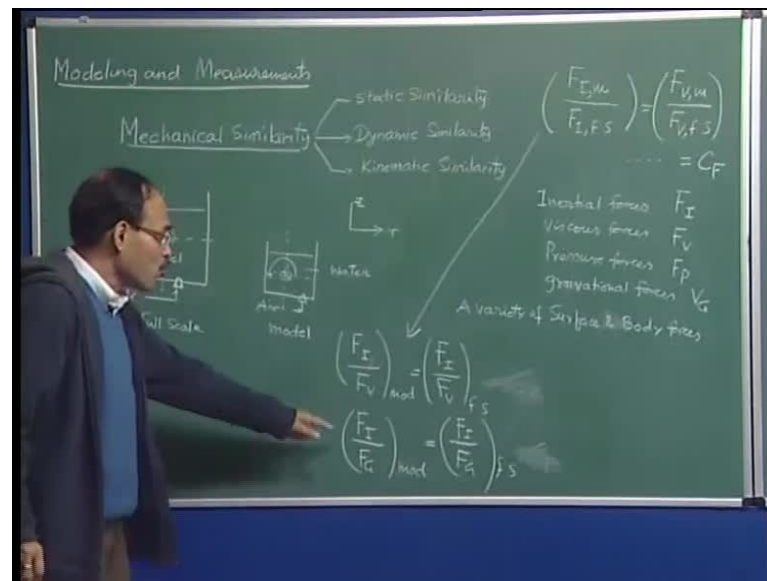 Modeling and Measurements
Mechanical Similarity
Static Similarity
Dynamic Similarity
Kinematic Similarity
(F_I,m / F_I,fs) = (F_V,m / F_V,fs)
.... = C_F
Inertial forces F_I
Viscous forces F_V
Pressure forces F_P
gravational forces V_G
A variety of Surface & Body forces
z
r
Full Scale
Water
model
(F_I / F_V)_mod = (F_I / F_V)_fs
(F_I / F_G)_mod = (F_I / F_G)_fs